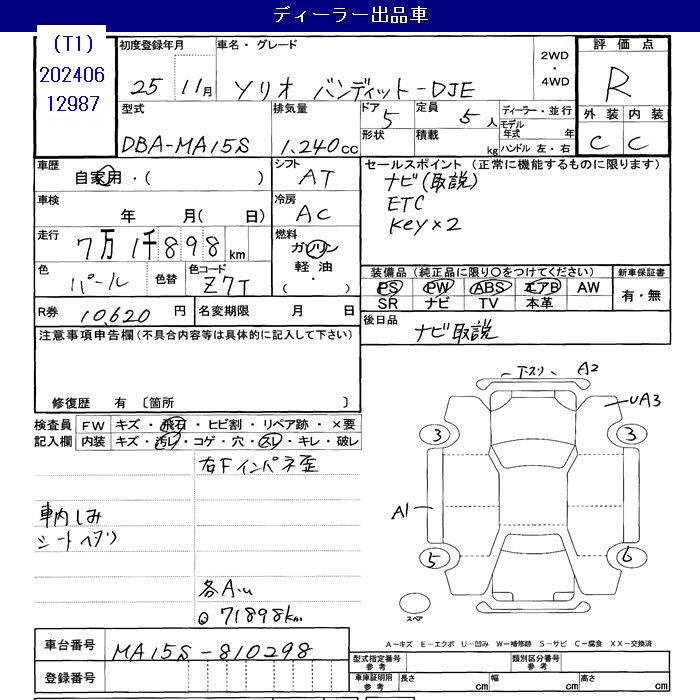 ディーラー出品車
(T1)
202406
12987
初度登録年月
25 11月
車名・グレード
ソリオ バンディット-DJE
2WD
・
4WD
評価点
R
外装 内装
C C
型式
DBA-MA15S
排気量
1,240cc
ドア
5
形状
定員
5人
積載
kg
ディーラー・並行
モデル
年式 年
ハンドル 左・右
車歴
自家用・( )
シフト
AT
セールスポイント (正常に機能するものに限ります)
ナビ(取説)
ETC
Key×2
車検
年 月( 日)
冷房
AC
走行
7万1千898km
燃料
ガソリン
軽油・
( )
色
パール
色替
色コード
Z7T
装備品 (純正品に限り○をつけてください)
PS PW ABS エアB AW
SR ナビ TV 本革
新車保証書
有・無
R券 10,620円
名変期限 月 日
後日品
ナビ取説
注意事項申告欄(不具合内容等は具体的に記入して下さい)
修復歴 有 〔箇所 〕
検査員
記入欄
FW キズ・飛石・ヒビ割・リペア跡・×要
内装 キズ・汚レ・コゲ・穴・スレ・キレ・破レ
右Fインパネ歪
車内しみ
シートヘタリ
各A.u
71898km
下スリ A2
UA3
3
3
A1
5
6
スペア
車台番号
MA15S-810298
登録番号
A−キズ E−エクボ U−凹み W−補修跡 S−サビ C−腐食 XX−交換済
型式指定番号
参考
類別区分番号
参考
車庫証明用
参考
長さ cm
幅 cm
高さ cm